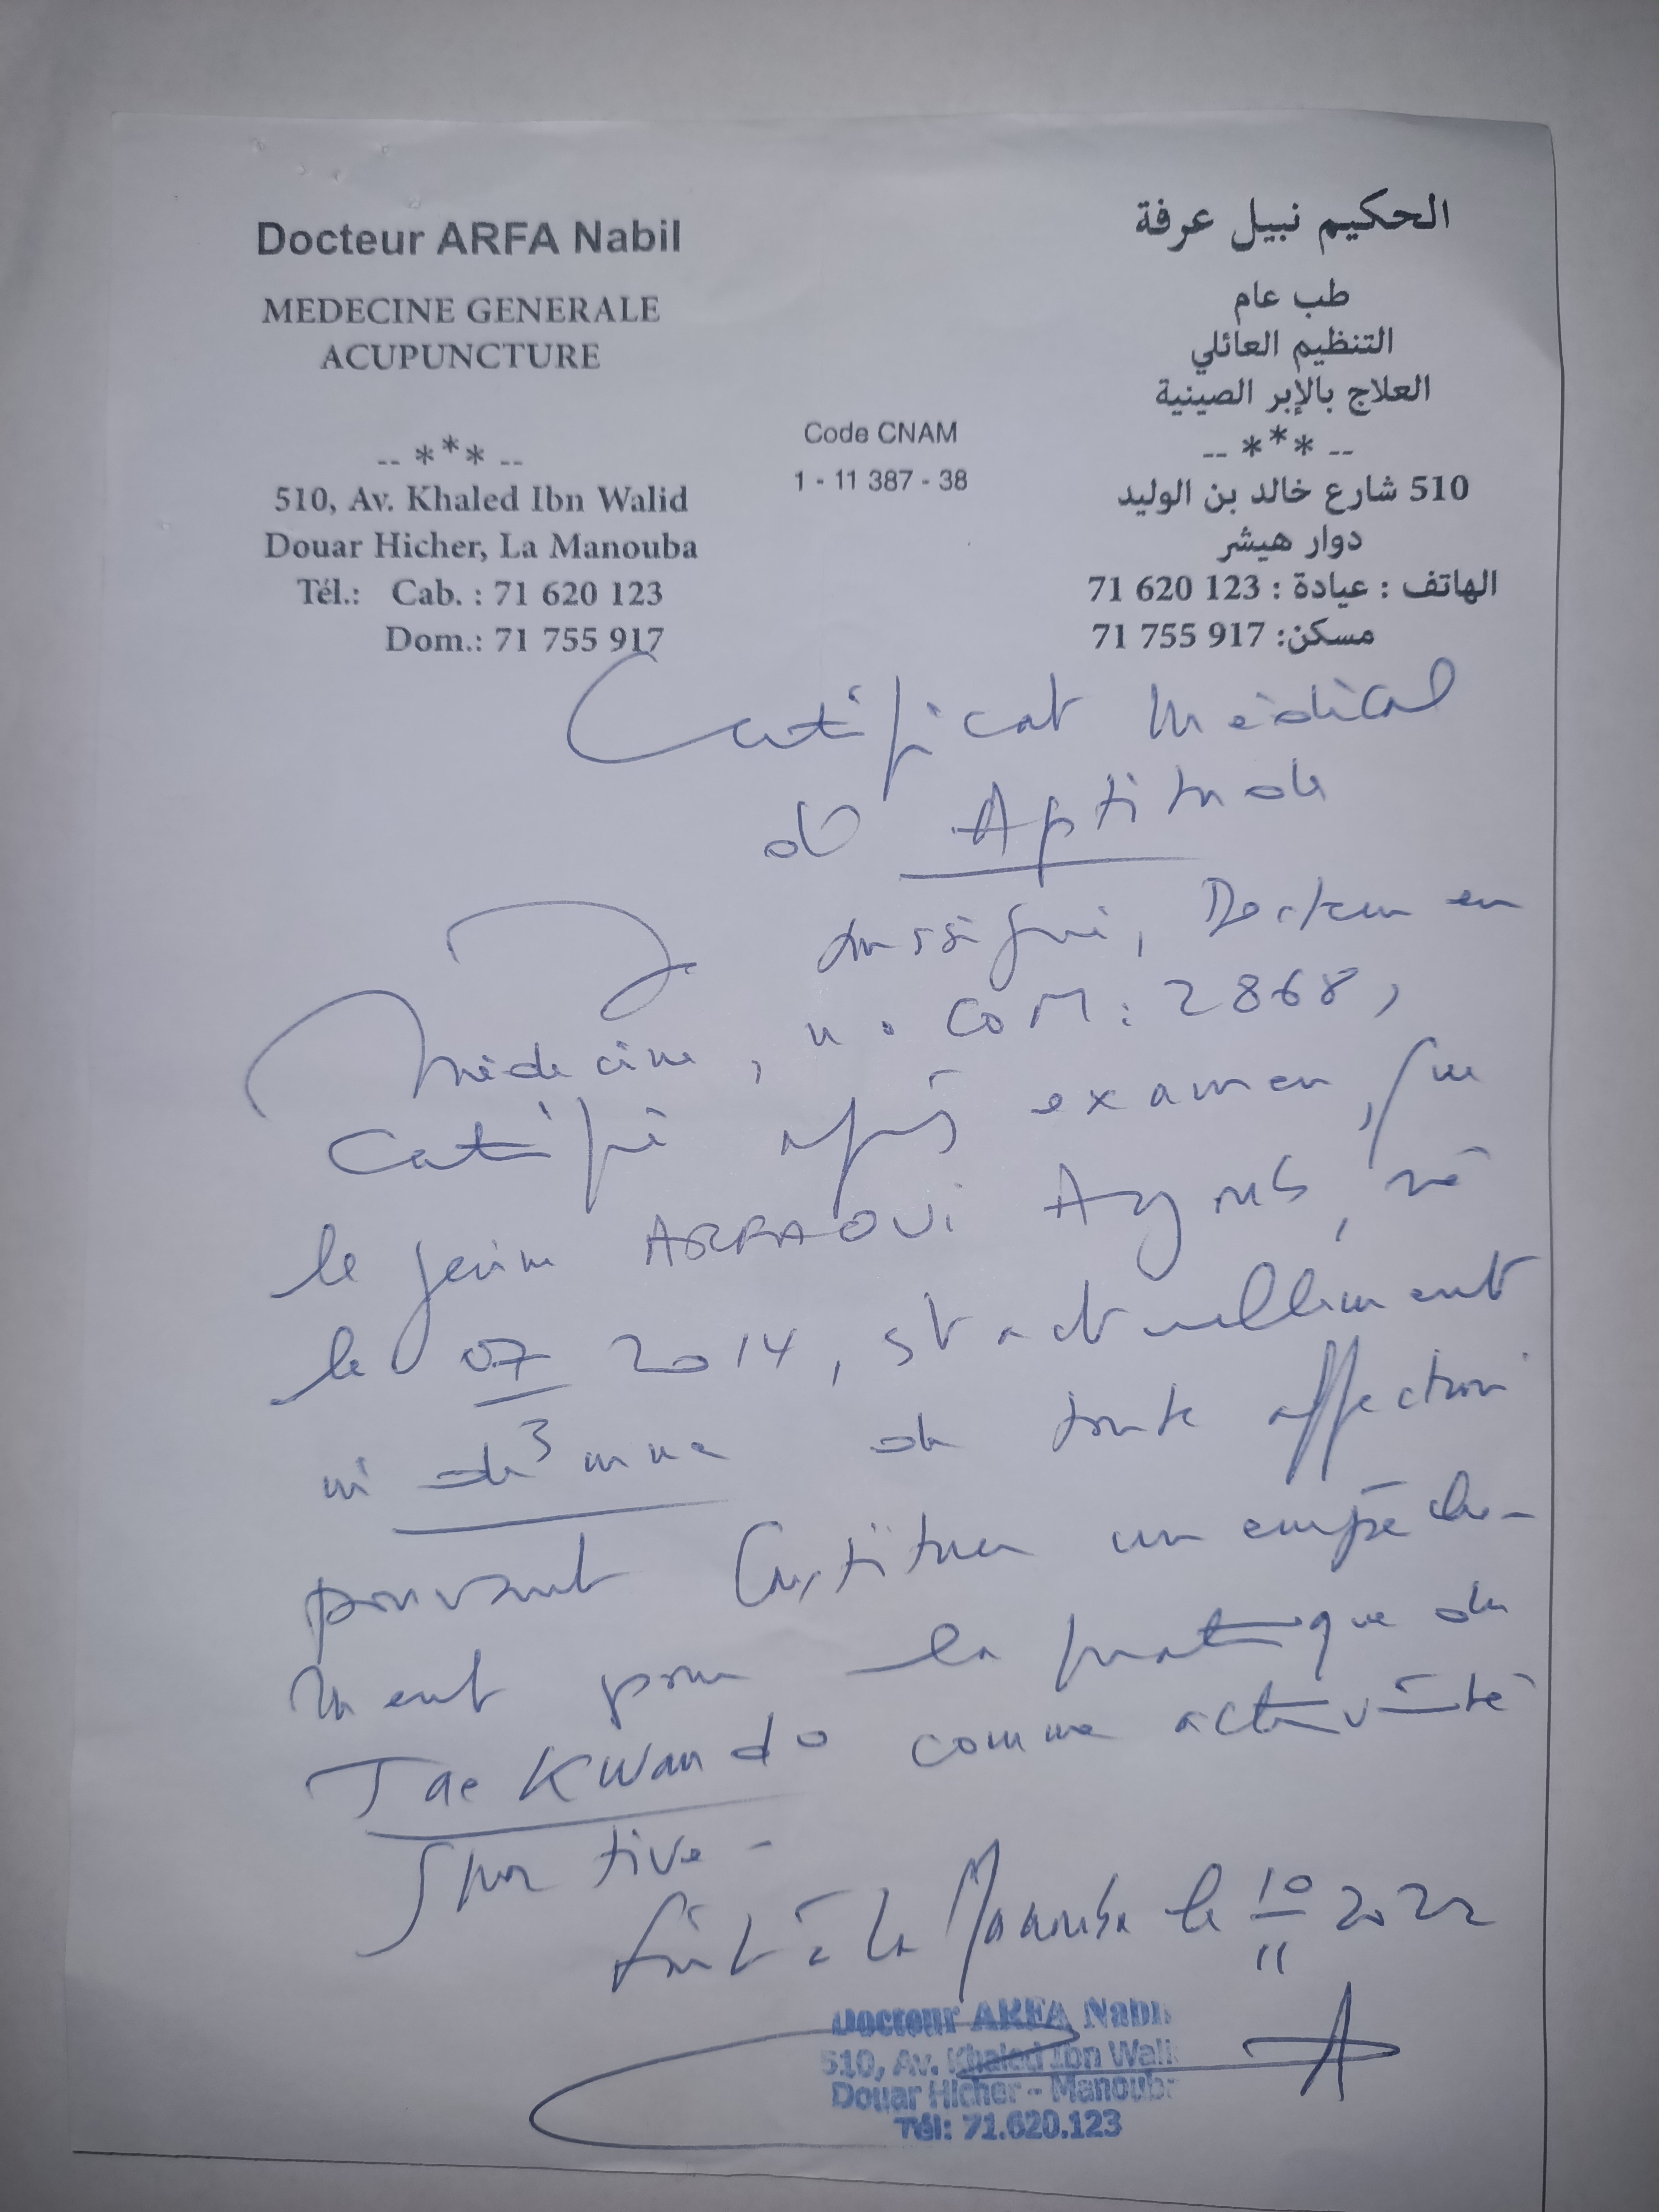 Docteur ARFA Nabil
MEDECINE GENERALE
ACUPUNCTURE
-- *** --
510, Av. Khaled Ibn Walid
Douar Hicher, La Manouba
Tél.: Cab. : 71 620 123
Dom.: 71 755 917
Code CNAM
1 - 11 387 - 38
الحكيم نبيل عرفة
طب عام
التنظيم العائلي
العلاج بالإبر الصينية
-- *** --
510 شارع خالد بن الوليد
دوار هيشر
الهاتف : عيادة : 123 620 71
مسكن: 917 755 71
Certificat Médical
d'Aptitude
Je soussigné, Docteur en
Médecine, n° COM: 2868,
Certifie après examen, que
le jeune Ayoub, né
le 07 2014, est actuellement
indemne de toute affection
pouvant Constituer un empêche-
ment pour la pratique du
TaeKwando comme activité
Sportive -
fait à la Manouba le 10/11 2022
Docteur ARFA Nabil
510, Av. Khaled Ibn Walid
Douar Hicher - Manouba
Tél: 71.620.123